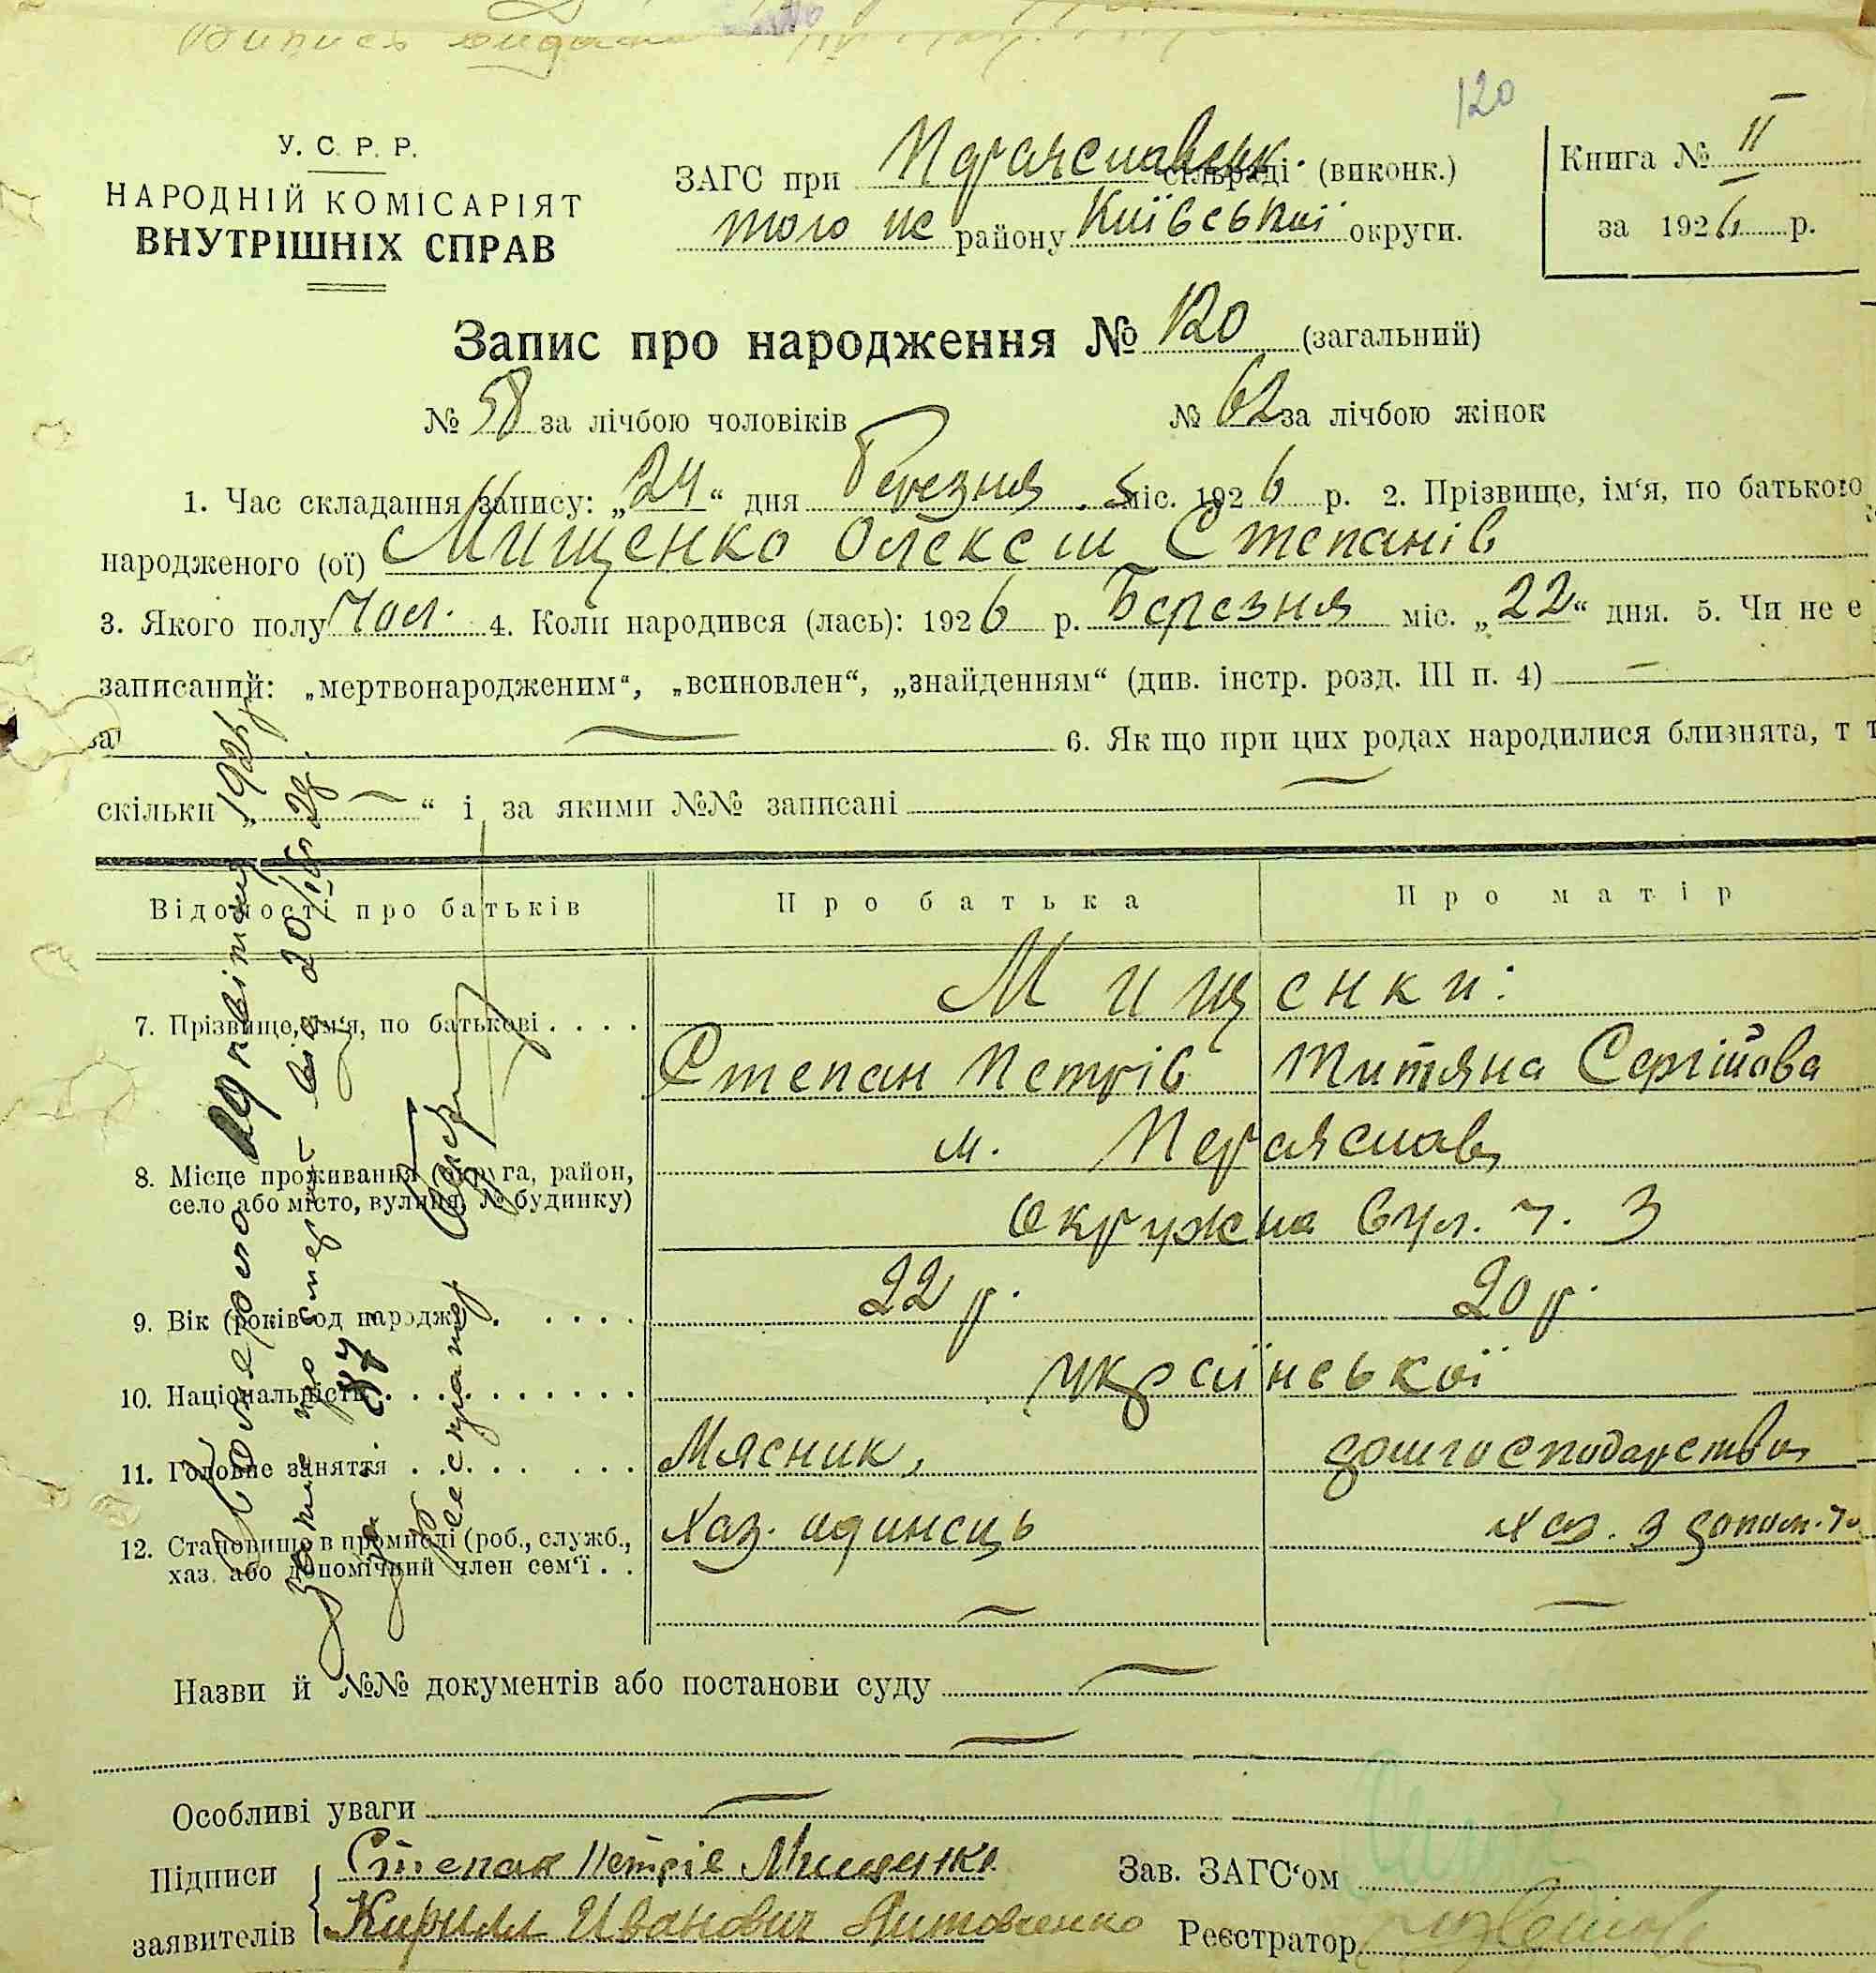 Випись видана
120
У. С. Р. Р.
НАРОДНІЙ КОМІСАРІЯТ
ВНУТРІШНІХ СПРАВ
ЗАГС при Переяславськ. сільраді (виконк.)
того же району Київської округи.
Книга № II
за 1926 р.
Запис про народження № 120 (загальний)
№ 58 за лічбою чоловіків № 62 за лічбою жінок
1. Час складання запису: „24“ дня Березня міс. 1926 р. 2. Прізвище, ім‘я, по батькою
народженого (ої) Мищенко Олексій Степанів
3. Якого полу Чол. 4. Коли народився (лась): 1926 р. Березня міс. „22“ дня. 5. Чи не є
записаний: „мертвонародженим“, „всиновлен“, „знайденням“ (див. інстр. розд. III п. 4) —
за — 6. Як що при цих родах народилися близнята, т
скільки „ — “ і за якими №№ записані —
Відомості про батьків Про батька Про матір
7. Прізвище, ім‘я, по батькові . . . . Мищенки:
Степан Петрів Титяна Сергійова
8. Місце проживання (округа, район,
село або місто, вулиця, № будинку)
м. Переяслав
Окружна вул. ч. 3
9. Вік (років од народж.) . . . . . 22 р. 20 р.
10. Національність . . . . . . . . . української
11. Головне заняття . . . . . . . Мясник, домгосподарство
12. Становище в промислі (роб., служб.,
хаз. або допомічний член сем‘ї . .
Хаз. одинець хаз. з допом.
Помероло 29 квітня 192
запис про смерть від 20/IV 26 р.
за ч. 84
Секретар
Назви й №№ документів або постанови суду —
Особливі уваги —
Підписи заявителів
Степан Петрів Мищенко
Кирилл Иванович Литовченко
Зав. ЗАГС‘ом
Реєстратор